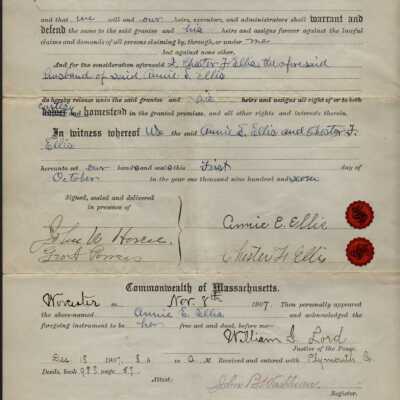 and that we will and our heirs, executors, and administrators shall warrant and
defend the same to the said grantee and his heirs and assigns forever against the lawful
claims and demands of all persons claiming by, through, or under me
but against none other.
And for the consideration aforesaid I, Chester F Ellis the aforesaid
husband of said Annie E. Ellis
do hereby release unto the said grantee and his heirs and assigns all right of or to both
dower and homestead in the granted premises, and all other rights and interests therein.
In witness whereof We the said Annie E. Ellis and Chester F.
Ellis
hereunto set our hands and seals this First day of
October in the year one thousand nine hundred and seven
Signed, sealed and delivered
in presence of
Annie E. Ellis
Chester F. Ellis
Commonwealth of Massachusetts.
Worcester ss Nov. 8th 1907. Then personally appeared
the above-named Annie E. Ellis and acknowledged the
foregoing instrument to be her free act and deed, before me—
William S. Lord
Justice of the Peace.
Dec 1907, M Received and entered with Plymouth Co.
Deeds, book 983 page
Attest:
John B. Washburn
Register.